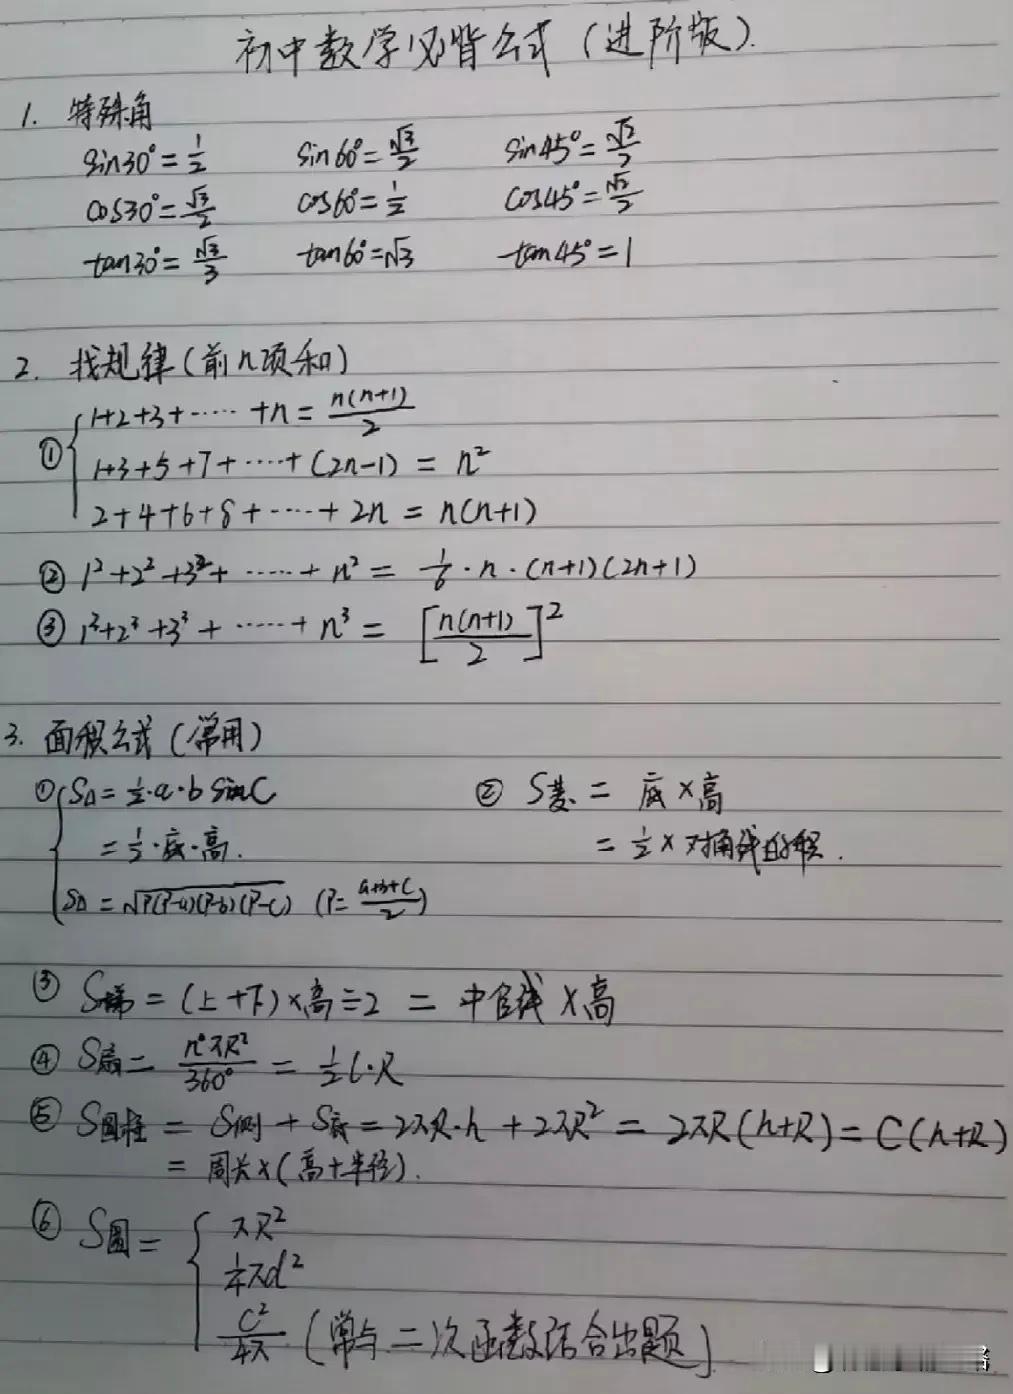 初中数学必背公式（进阶版）.
1. 特殊角
sin30°=1/2 sin60°=√3/2 sin45°=√2/2
cos30°=√3/2 cos60°=1/2 cos45°=√2/2
tan30°=√3/3 tan60°=√3 tan45°=1
2. 找规律(前n项和)
① { 1+2+3+……+n=n(n+1)/2
1+3+5+7+……+(2n-1)=n²
2+4+6+8+……+2n=n(n+1)
② 1²+2²+3²+……+n²=1/6·n·(n+1)(2n+1)
③ 1³+2³+3³+……+n³=[n(n+1)/2]²
3. 面积公式(常用)
① { S△=1/2·a·b sinC ② S菱=底×高
=1/2·底·高. =1/2×对角线的积.
S△=√P(P-a)(P-b)(P-c) (P=(a+b+c)/2)
③ S梯=(上+下)×高÷2=中位线×高
④ S扇=n°πR²/360°=1/2l·R
⑤ S圆柱=S侧+S底=2πR·h+2πR²=2πR(h+R)=C(h+R)
=周长×(高+半径).
⑥ S圆= { πR²
1/4πd²
C²/4π (常与二次函数结合出题)